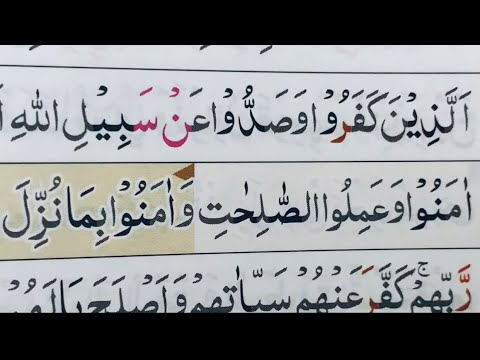 اَلَّذِيْنَ كَفَرُوْا وَصَدُّوْا عَنْ سَبِيْلِ اللّٰهِ
اٰمَنُوْا وَعَمِلُوا الصّٰلِحٰتِ وَاٰمَنُوْا بِمَا نُزِّلَ
رَّبِّهِمْ ۚ كَفَّرَ عَنْهُمْ سَيِّاٰتِهِمْ وَاَصْلَحَ بَالَهُمْ